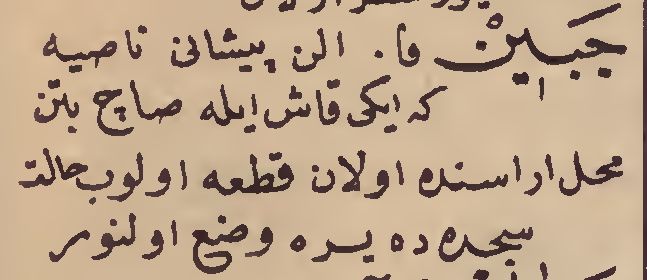 جَبِينْ فا. الن پیشانی ناصیه
که ایکی قاش ایله صاچ بتن
محل اراسنده اولان قطعه اولوب حالت
سجده ده یره وضع اولنور